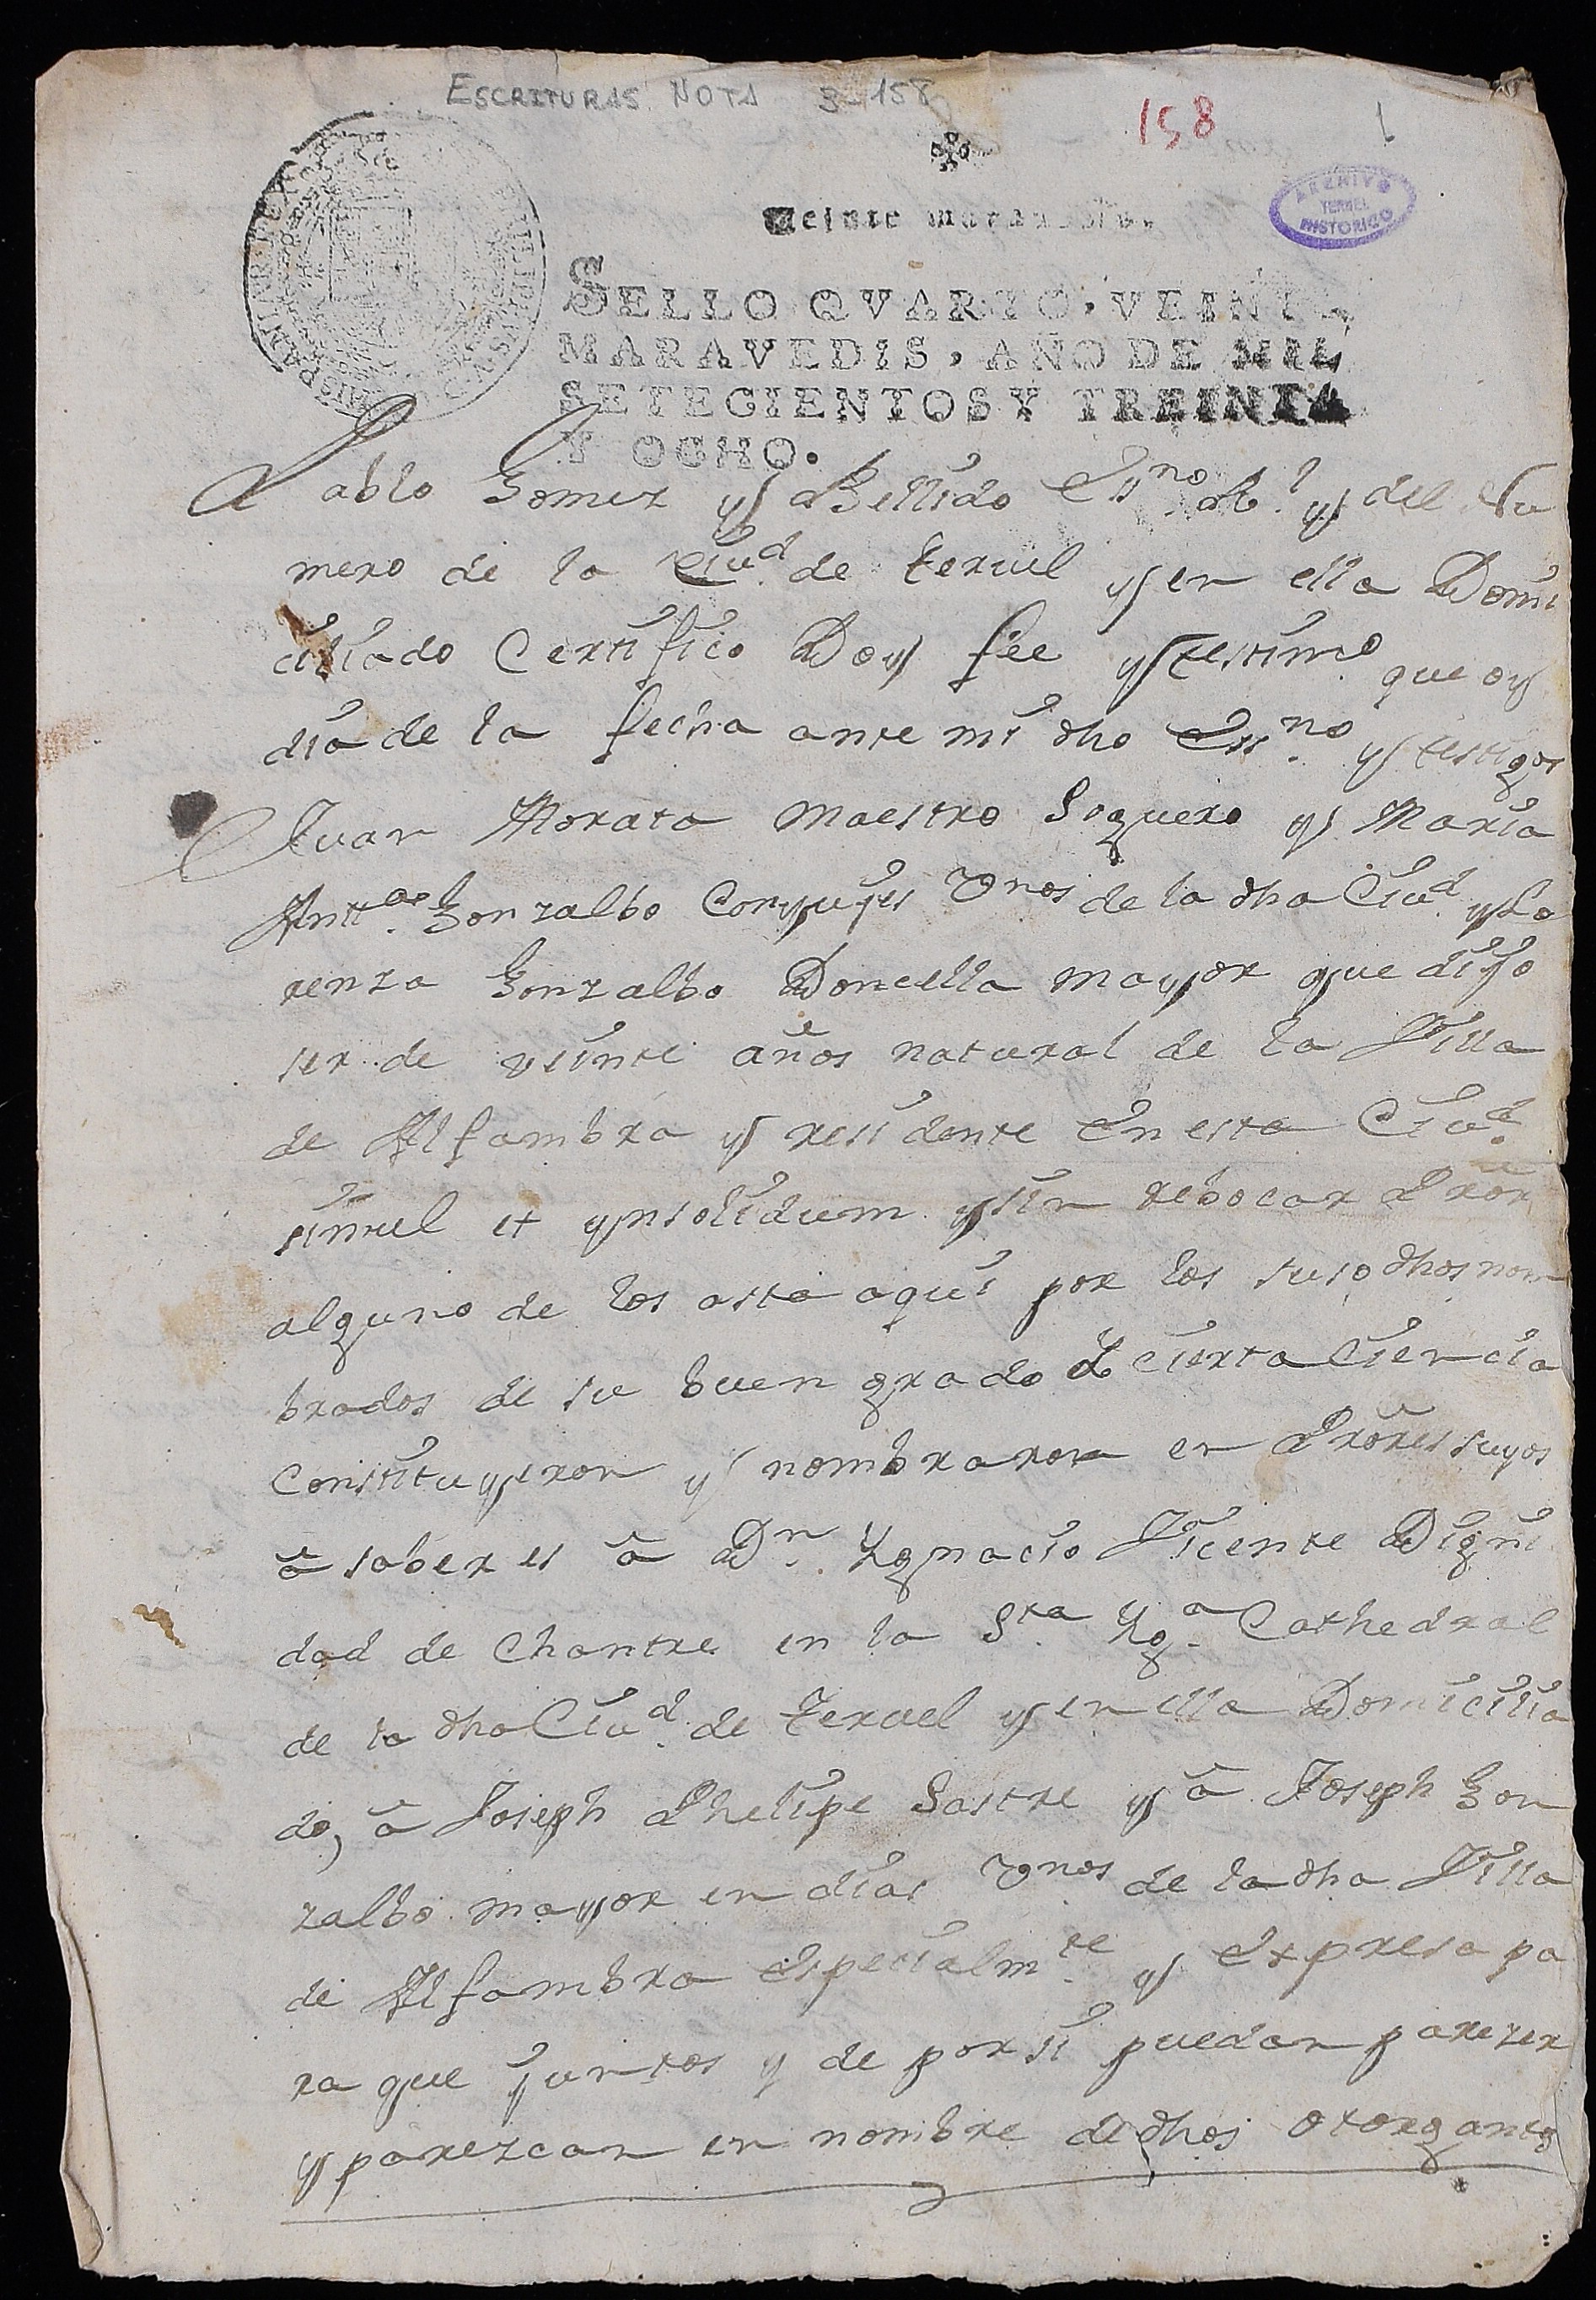 ESCRITURAS NOTA 3-158
158
1
ARCHIVO
TERUEL
HISTORICO
Veinte marauedis.
SELLO QVARTO, VEINTE
MARAVEDIS, AÑO DE MIL
SETECIENTOS Y TREINTA
Y OCHO.
Pablo Gomez y Bellido Essno. Rl. y del Nu
mero de la Ciud. de Teruel y en ella Domi
ciliado Certifico Doy fee y testimo. que oy
dia de la fecha ante mi dho Essno. y testigos
Juan Morata Maestro Soguero y Maria
Antta. Gonzalbo Conyujes Vnos de la dha Ciud. y Lo
renza Gonzalbo Doncella mayor que dijo
ser de veinte años natural de la Villa
de Alfambra y residente en esta Ciud.
simul et ynsolidum y sin rebocar Pror
alguno de los asta aqui por los suso dhos nom
brados de su buen grado Y cierta Ciencia
Constituyeron y nombraron en Prores suyos
â saber es â Dn. Ygnacio Vicente Digni
dad de Chantre en la Sta. Yga. Cathedral
de la dha Ciud. de Teruel y en ella Domicilia
do, â Joseph Phelipe Sastre y â Joseph Gon
zalbo mayor en dias Vnos de la dha Villa
de Alfambra espezialmte. y expresa pa
ra que juntos y de por si puedan parezer
y parezcan en nombre de dhos otorgantes